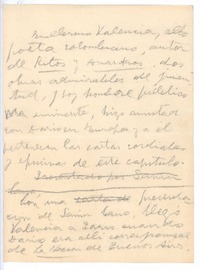 Guillermo Valencia, alto
poeta colombiano, autor
de Ritos y dos
obras admirables de juven-
tud, y hoy hombre público
eminente, hizo amistad
con Darío en Europa; a él
pertenecen las cartas cordiales
y efusivas de este capítulo.
Con una presenta-
ción de Sanín Cano, llegó
Valencia a París cuando
Darío era allí corresponsal
de La Nación de Buenos Aires.